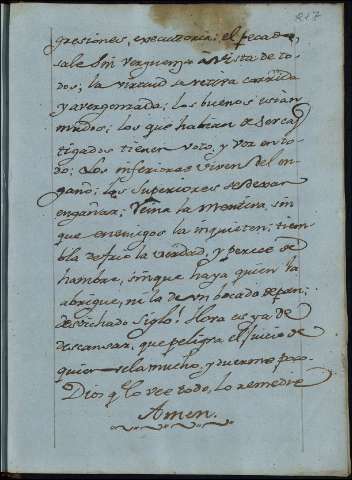 217
gresiones, executoria: el pecado
sale sin verguenza à vista de to-
dos; la virtud se retira corrida
y avergonzada; los buenos estan
mudos; los que habian de ser cas
tigados tienen voto, y voz en to-
do; Los inferiores viven del en
gaño; los Superiores se dexan
engañar; Reina la mentira, sin
que enemigos la inquieten; tiem
bla de frio la verdad, y perece de
hambre, sin que haya quien la
abrigue, ni la de un bocado de pan;
desdichado siglo! Hora es ya de
descansar, que peligra el juicio de
quien vela mucho, y duerme poco
Dios q.e lo vee todo, lo remedie
Amen.